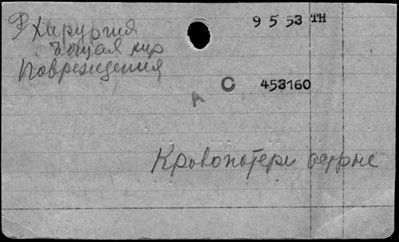 Хирургия
9 5 53 TH
общая хир
Повреждения
A C 453160
Кровопотери острые